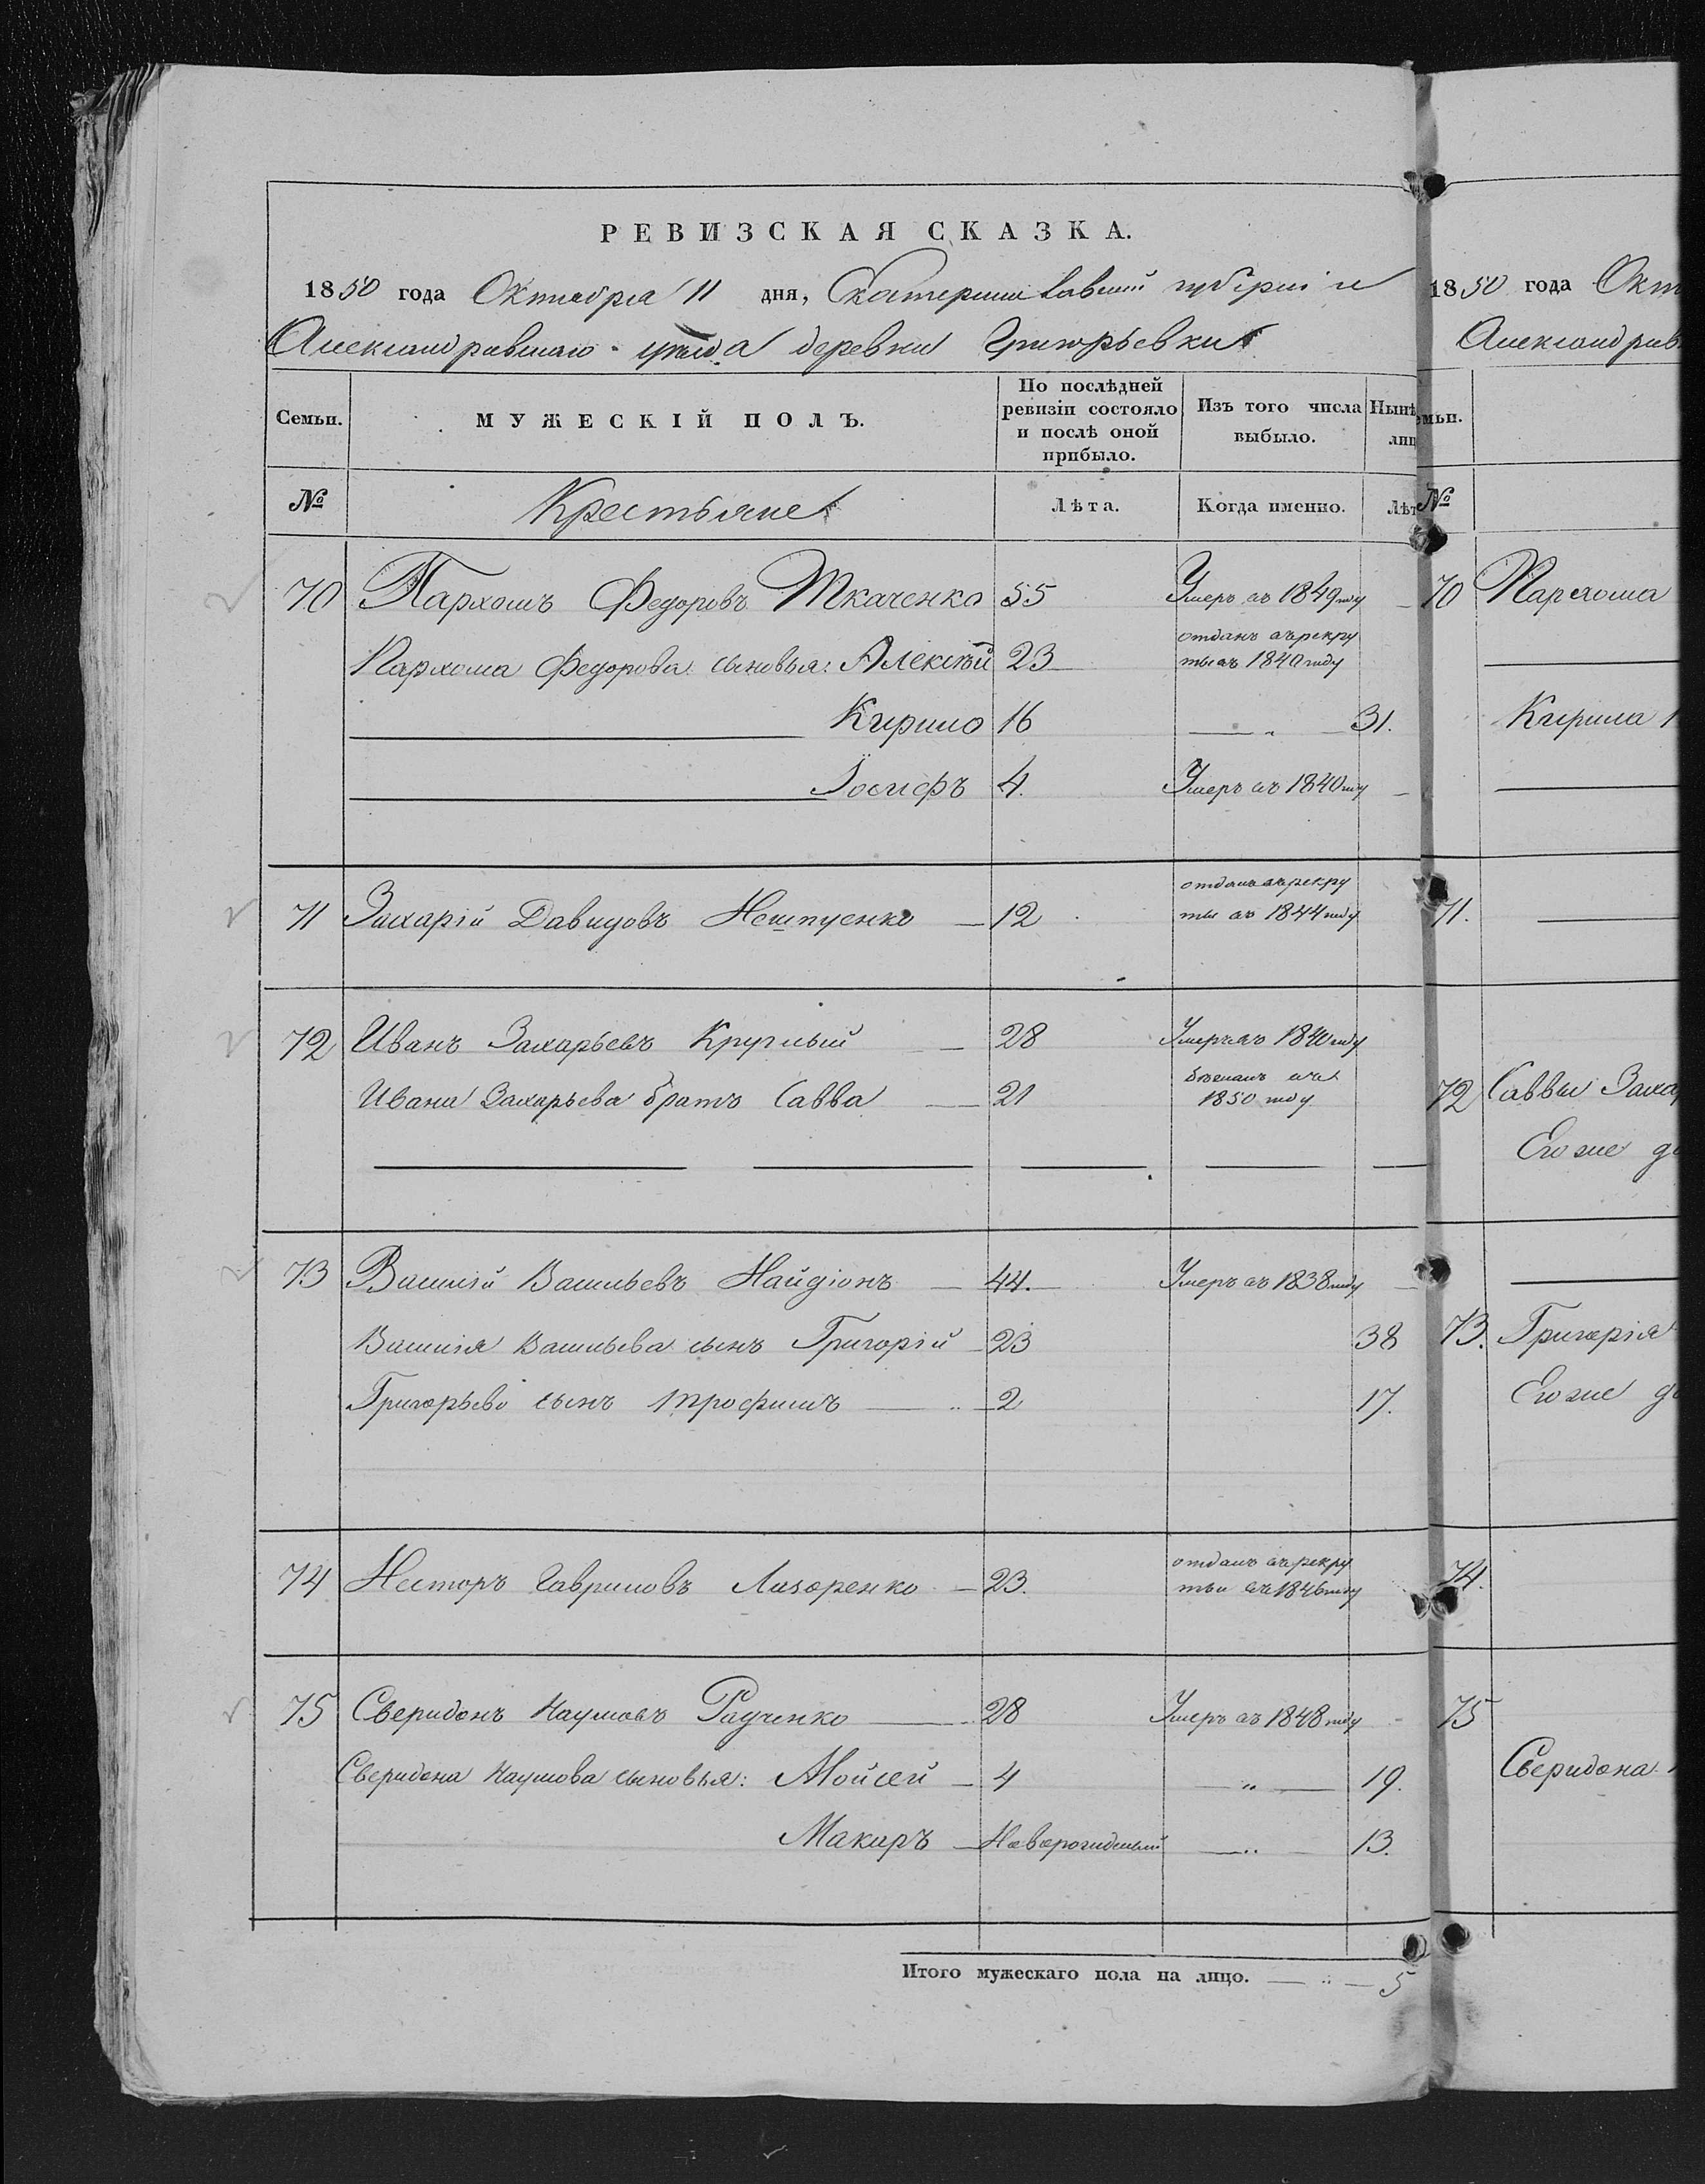 РЕВИЗСКАЯ СКАЗКА.
1850 года Октября 11 дня, Екатеринославской губерніи
Александровскаго уѣзда деревни Григорьевки
Семьи. МУЖЕСКІЙ ПОЛЪ. По послѣдней ревизіи состояло и послѣ оной прибыло. Изъ того числа выбыло. Нынѣ лиц
№ Крестьяне Лѣта. Когда именно. Лѣт
70 Пархомъ Федоровъ Ткаченко 55 Умеръ въ 1849 году
Пархома Федорова сыновья: Алексѣй 23 отданъ въ рекру
ты въ 1840 году
Кирило 16 " 31.
Іосифъ 4. Умеръ въ 1840 году
71 Захарій Давидовъ 12 отданъ въ рекру
ты въ 1844 году
72 Иванъ Захарьевъ Круглый 28 Умеръ въ 1840 году
Ивана Захарьева братъ Савва 21
1850 году
73 Василій Васильевъ Найдіонъ 44. Умеръ въ 1838 году
Василія Васильева сынъ Григорій 23 38
Григорьева сынъ Трофимъ 2 17.
74 Несторъ Гавриловъ Лазоренко 23. отданъ въ рекру
ты въ 1846 году
75 Сверидонъ Наумовъ Радченко 28 Умеръ въ 1848 году
Сверидона Наумова сыновья: Мойсей 4 " 19.
Макаръ Новорожденный " 13.
Итого мужескаго пола на лицо. " 5
1850 года Окт
Александров
емьи.
№
70 Пархома
Кирила
71.
72 Саввы Заха
Его же до
73. Григорія
Его же до
74.
75
Сверидона